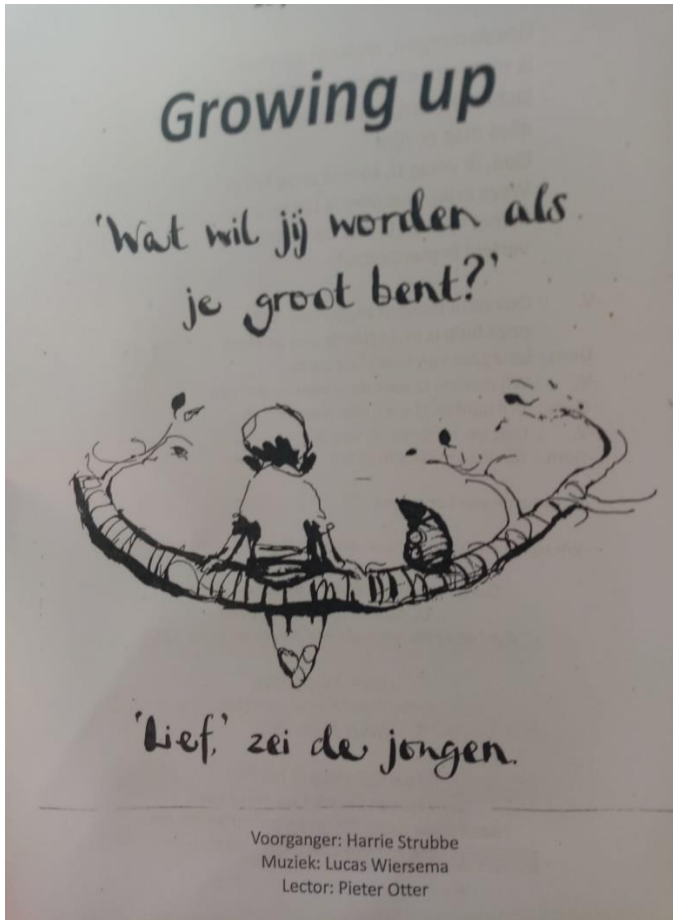 Growing up
'Wat wil jij worden als
je groot bent?'
'Lief,' zei de jongen.
Voorganger: Harrie Strubbe
Muziek: Lucas Wiersema
Lector: Pieter Otter